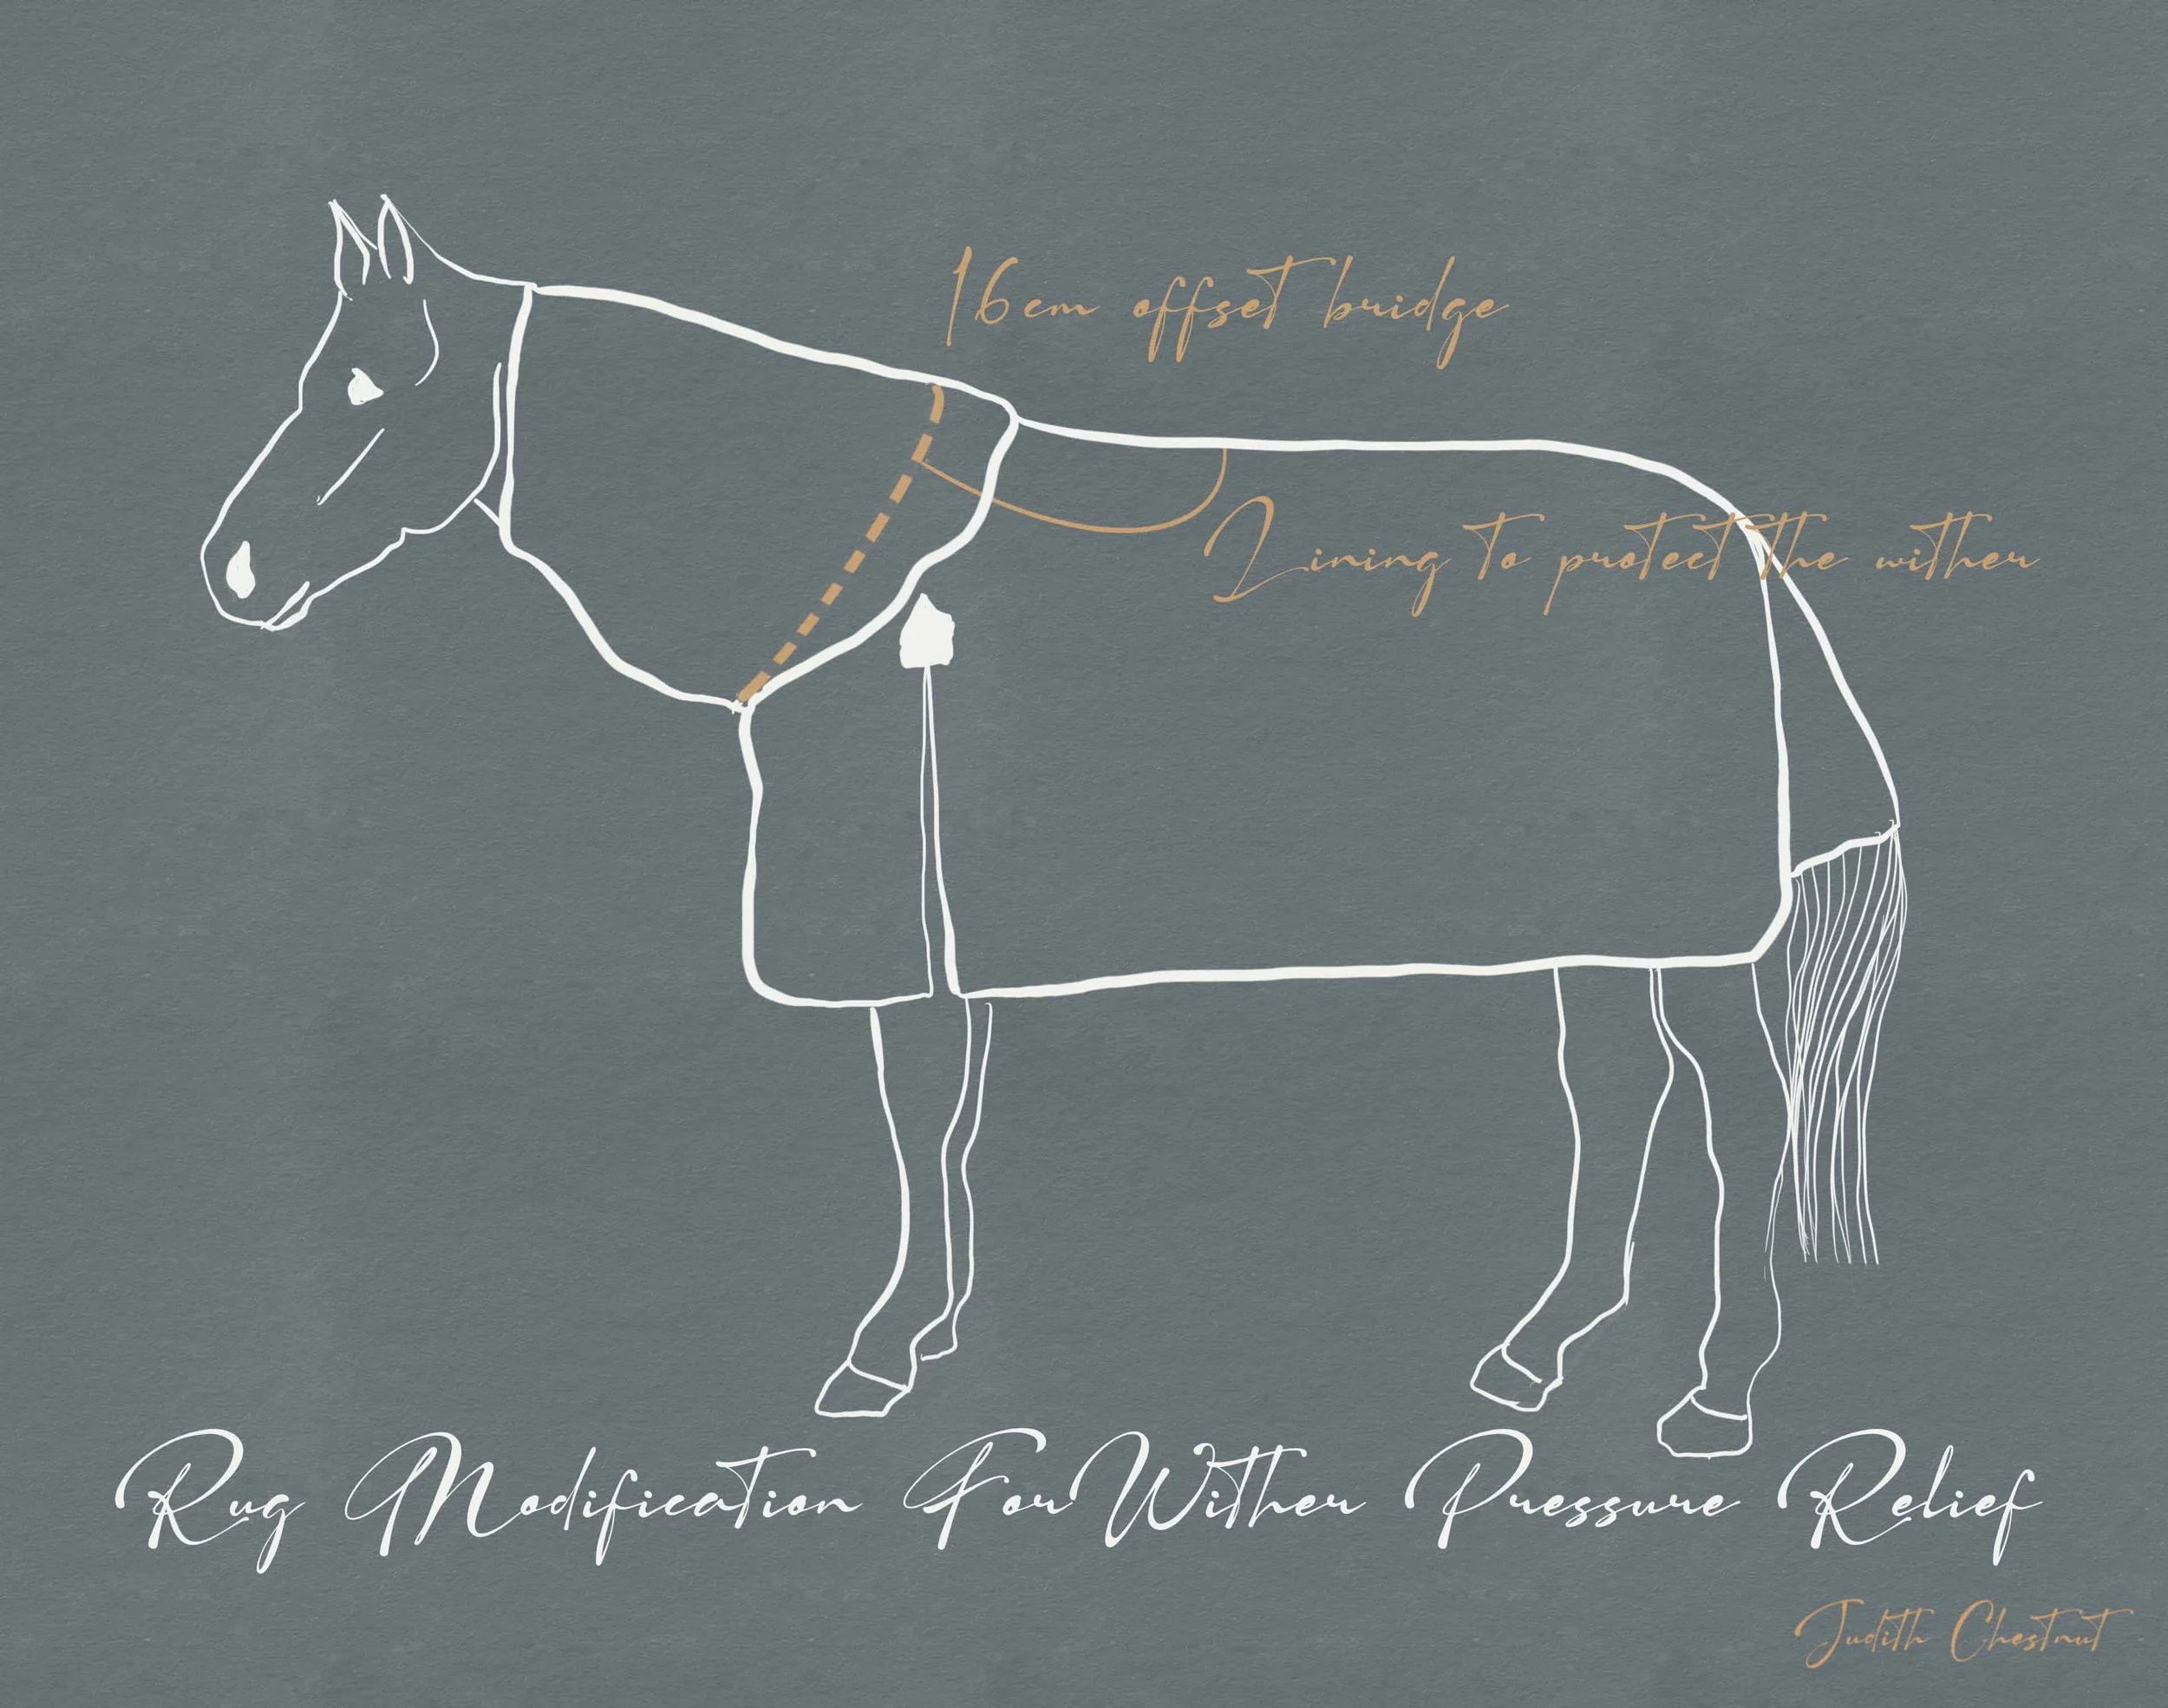 16cm offset bridge
Lining to protect the wither
Rug Modification For Wither Pressure Relief
Judith Chestnut